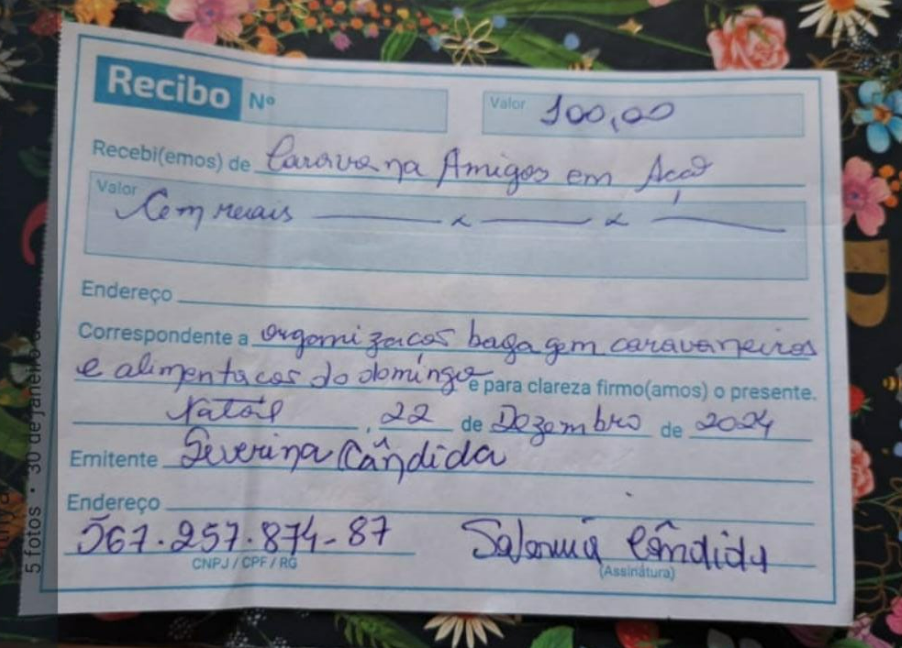 Recibo Nº
Valor 100,00
Recebi(emos) de Caravana Amigos em Ação
Valor
Cem reais
Endereço
Correspondente a organizacos bagagem caravaneiros
e alimentacos do domingo e para clareza firmo(amos) o presente.
Natal, 22 de Dezembro de 2024
Emitente Severina Cândida
Endereço
567.257.874-87 Cândida
CNPJ / CPF / RG (Assinatura)
5 fotos • 30 de janeiro